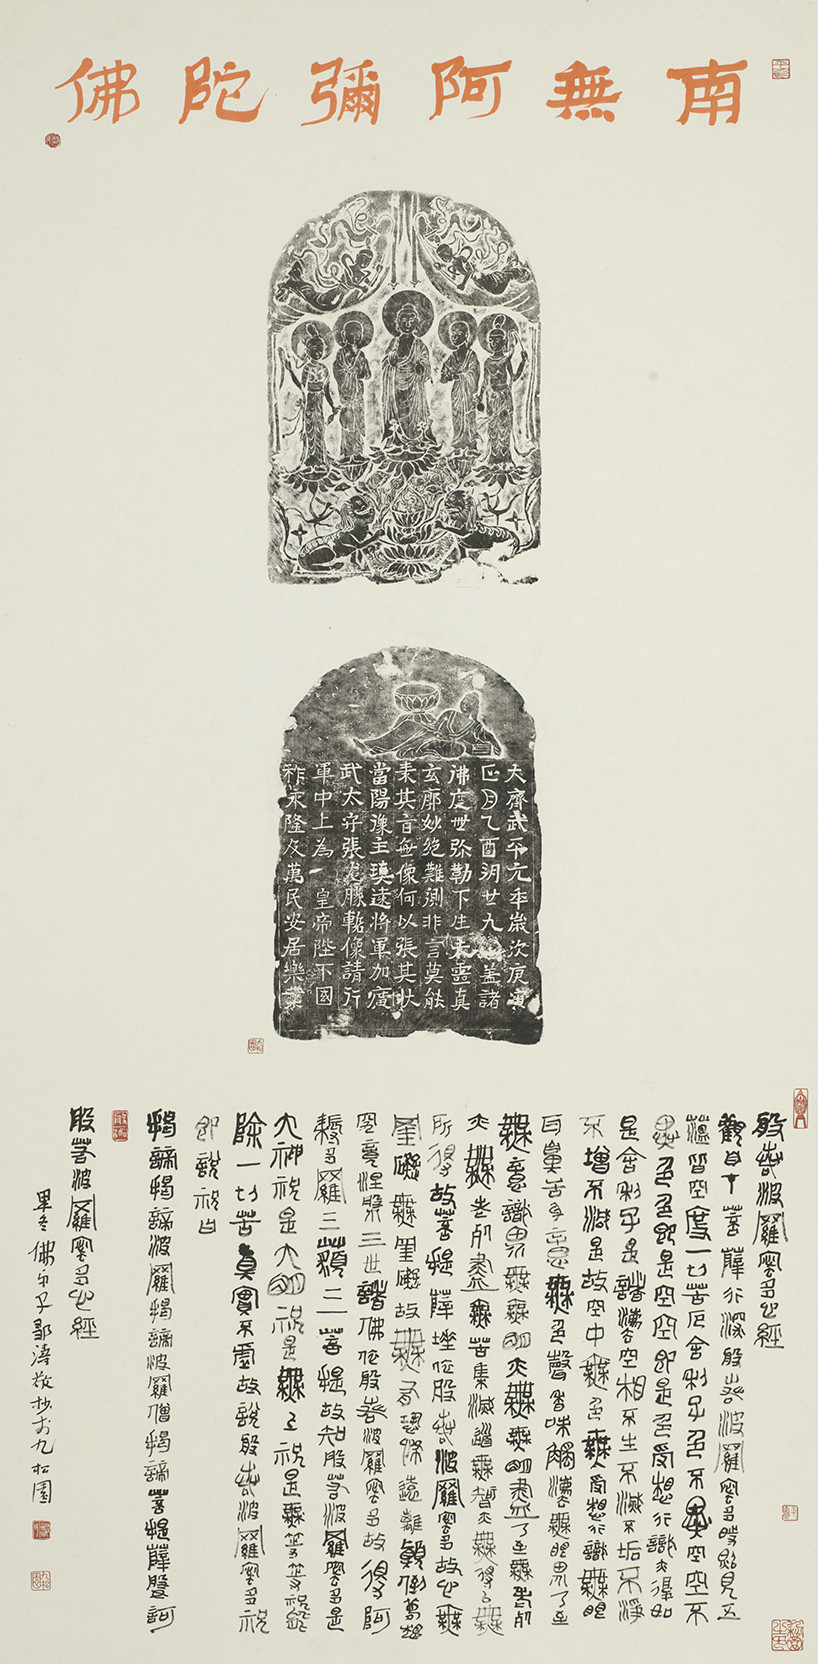 南無阿彌陀佛
大齊武平元年歲次庚寅
正月乙酉朔廿九蓋諸
佛度世弥勒下生真
玄廓妙絕難測非言莫能
素其音無像何以張其狀
當陽豫主遠將軍加廣
武太守張龍像請
軍中上為皇帝陛下國
祚永隆及萬民安居樂業
般若波羅蜜多心經
觀自在菩薩行深般若波羅蜜多時照見五
蘊皆空度一切苦厄舍利子色不異空空不
異色色即是空空即是色受想行識亦復如
是舍利子是諸法空相不生不滅不垢不淨
不增不減是故空中無色無受想行識無眼
耳鼻舌身意無色聲香味觸法無眼界乃至
無意識界無無明亦無無明盡乃至無老死
亦無老死盡無苦集滅道無智亦無得以無
所得故菩提薩埵依般若波羅蜜多故心無
罣礙無罣礙故無有恐怖遠離顛倒夢想
究竟涅槃三世諸佛依般若波羅蜜多故得阿
耨多羅三藐三菩提故知般若波羅蜜多是
大神祝是大明祝是無上祝是無等等祝能
除一切苦真實不虛故說般若波羅蜜多祝
即說祝曰
揭諦揭諦波羅揭諦波羅僧揭諦菩提薩婆訶
般若波羅蜜多心經
佛弟子鄒濤敬抄於九松園